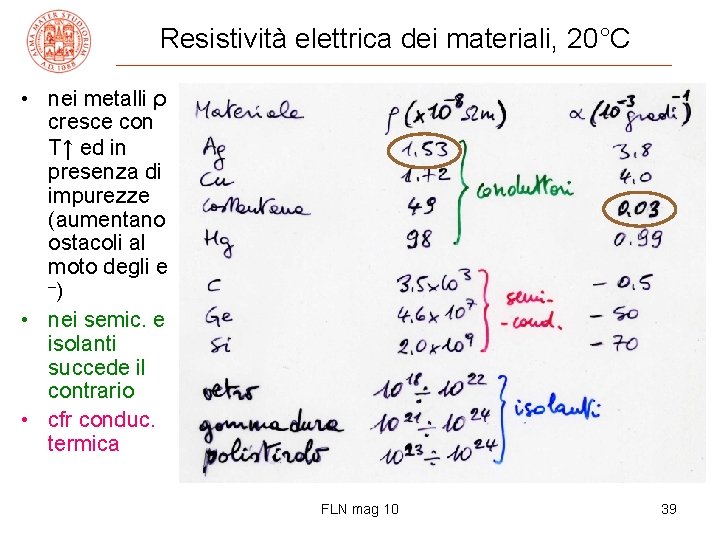 ALMA MATER STUDIORUM
A.D. 1088
Resistività elettrica dei materiali, 20°C
• nei metalli ρ
cresce con
T↑ ed in
presenza di
impurezze
(aumentano
ostacoli al
moto degli e
–)
• nei semic. e
isolanti
succede il
contrario
• cfr conduc.
termica
Materiale ρ (×10⁻⁸ Ωm) α (10⁻³ gradi⁻¹)
Ag 1.53 3.8
Cu 1.72 4.0
costantana 49 0.03
Hg 98 0.99
conduttori
C 3.5×10³ – 0.5
Ge 4.6×10⁷ – 50
Si 2.0×10⁹ – 70
semi-
-cond.
vetro 10¹⁸ ÷ 10²²
gomma dura 10²¹ ÷ 10²⁴
polistirolo 10²³ ÷ 10²⁴
isolanti
FLN mag 10
39